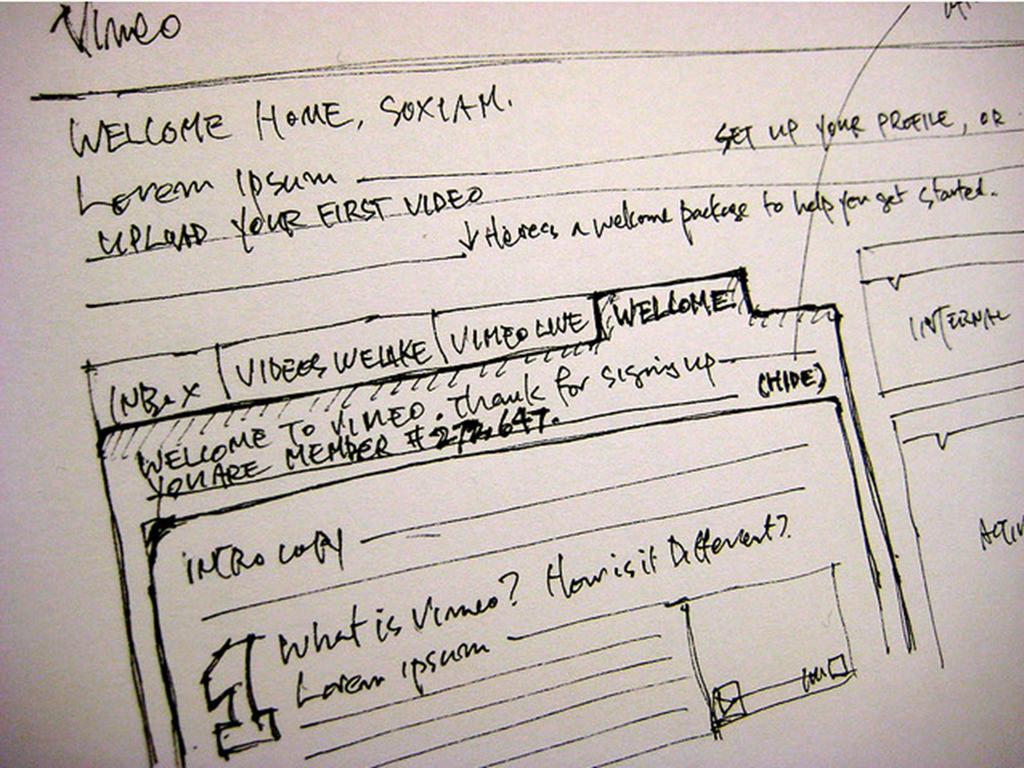 Vimeo
WELCOME HOME, SOXIAM.
Lorem ipsum SET UP YOUR PROFILE, OR
UPLOAD YOUR FIRST VIDEO
↓ Heres a welcome package to help you get started.
INBOX VIDEOS WE LIKE VIMEO LIVE WELCOME
WELCOME TO VIMEO. Thank for signing up
(HIDE)
YOU ARE MEMBER # 272,647.
INTERNAL
INTRO COPY
ACTIV
1 What is Vimeo? How is it Different?
Lorem ipsum